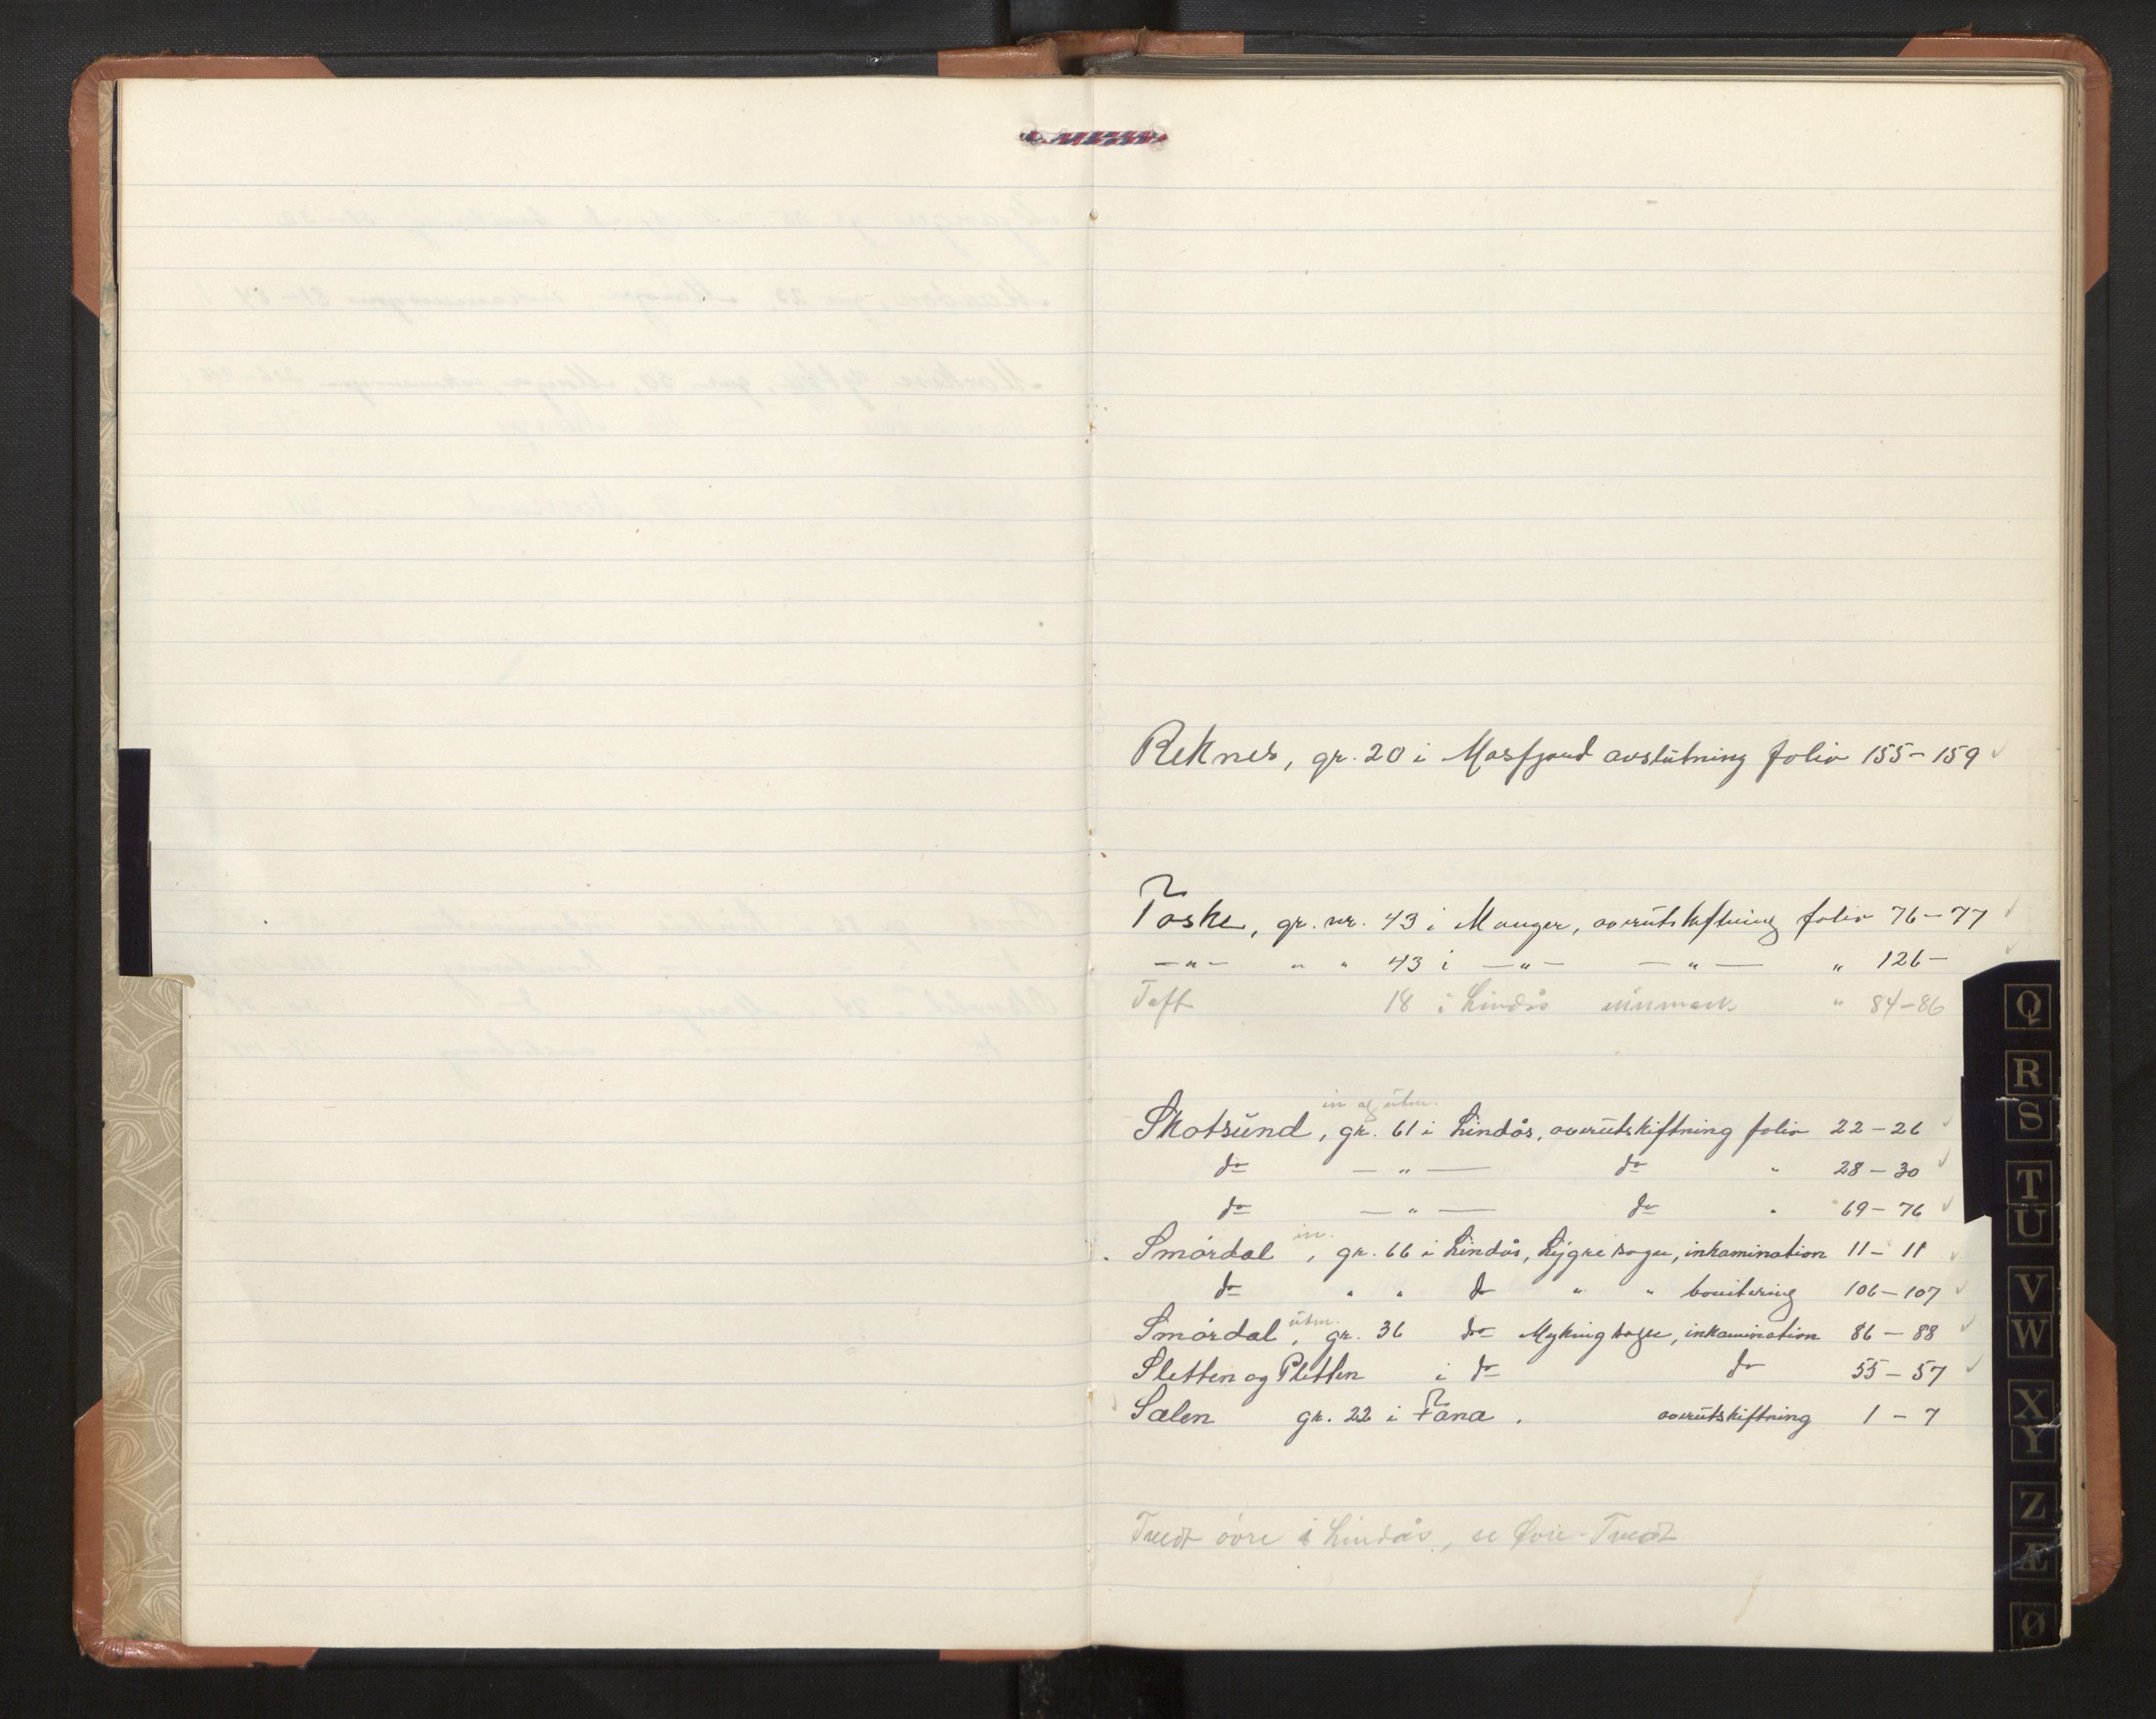 Reknes, gr. 20 i Masfjord avslutning folio 155-159
Toske, gr. nr. 43 i Manger, overutskiftning folio 76-77
-"- " " 43 i -"- -"- " 126-
Toft 18 i Lindås innmark " 84-86
in og utm.
Skotsund, gr. 61 i Lindås, overutskiftning folio 22-26
do -"- do " 28-30
do -"- do " 69-76
in.
Smørdal, gr. 66 i Lindås, Lygre sogn, inkamination 11-11
do " " do " " bonitering 106-107
utm.
Smørdal, gr. 36 do Myking sogn, inkamination 86-88
Sletten og Pletten i do do 55-57
Sælen gr. 22 i Fana. overutskiftning 1-7
Tvedt øvre i Lindås, se Øvre-Tvedt
Q
R
S
T
U
V
W
X
Y
Z
Æ
Ø